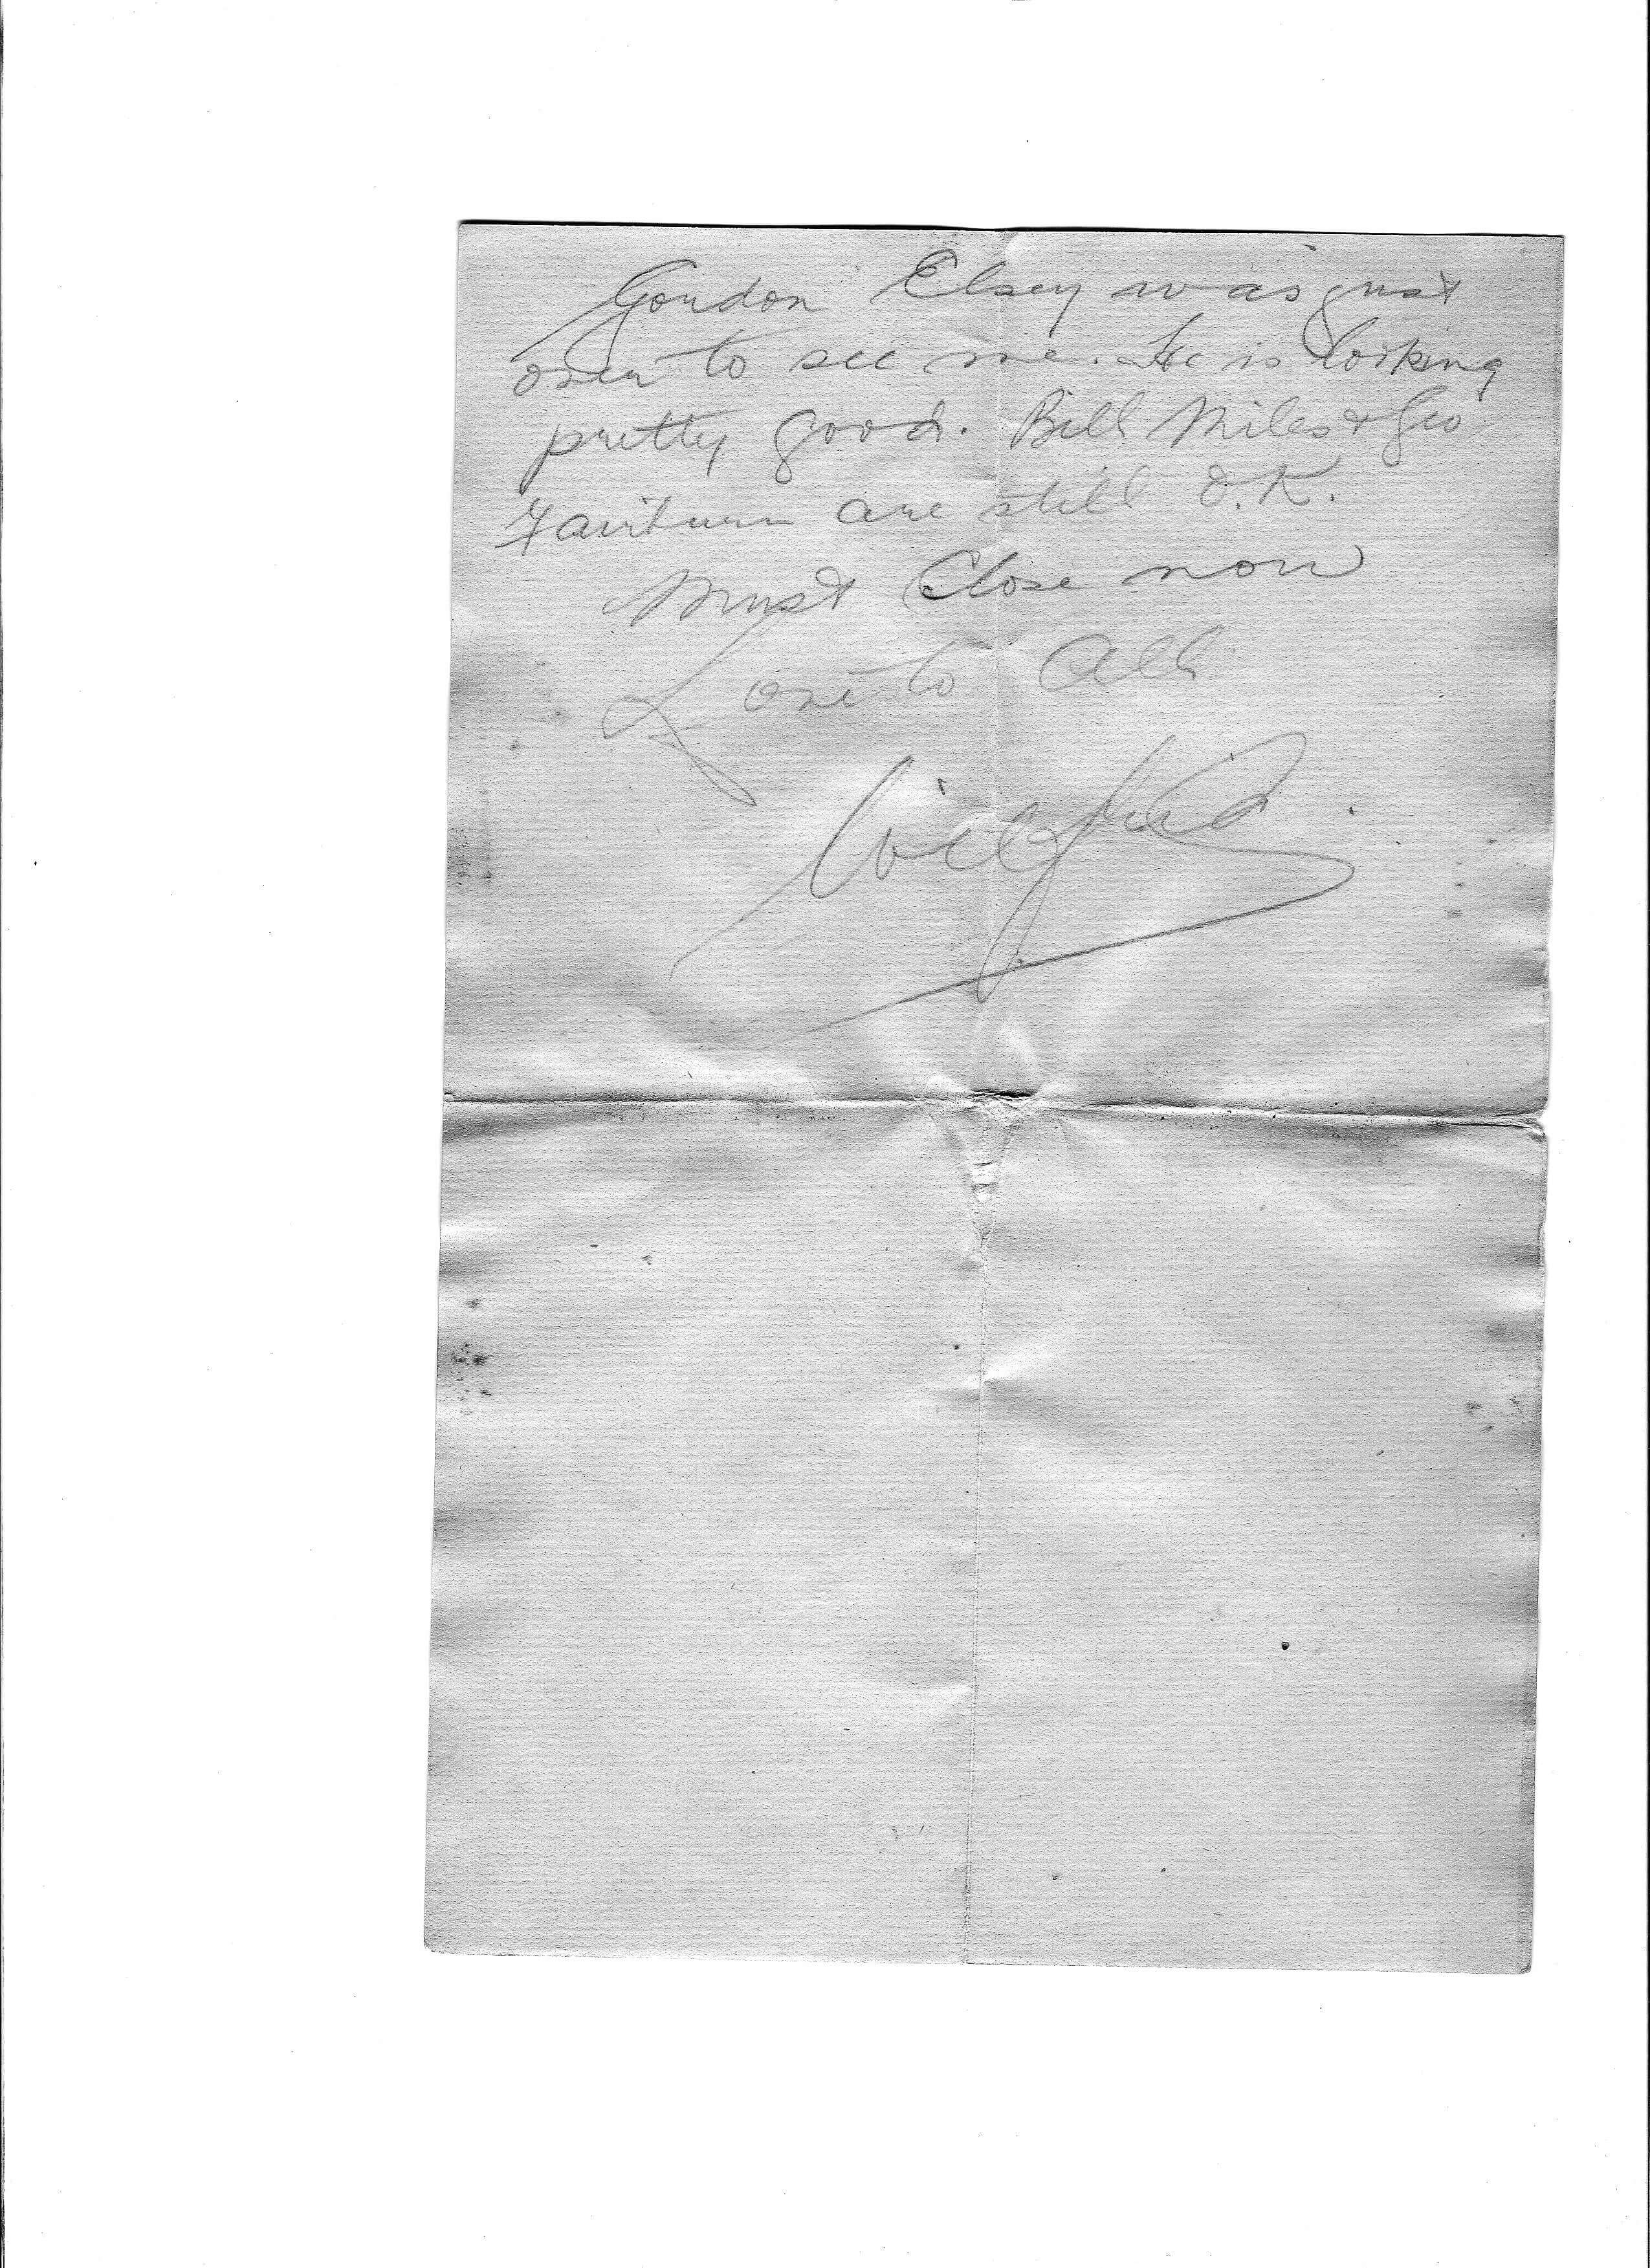 Gordon Elsey was just
over to see me. He is looking
pretty good. Bill Miles & Geo
are still O.K.
Must Close now
Love to All
Wilfrid